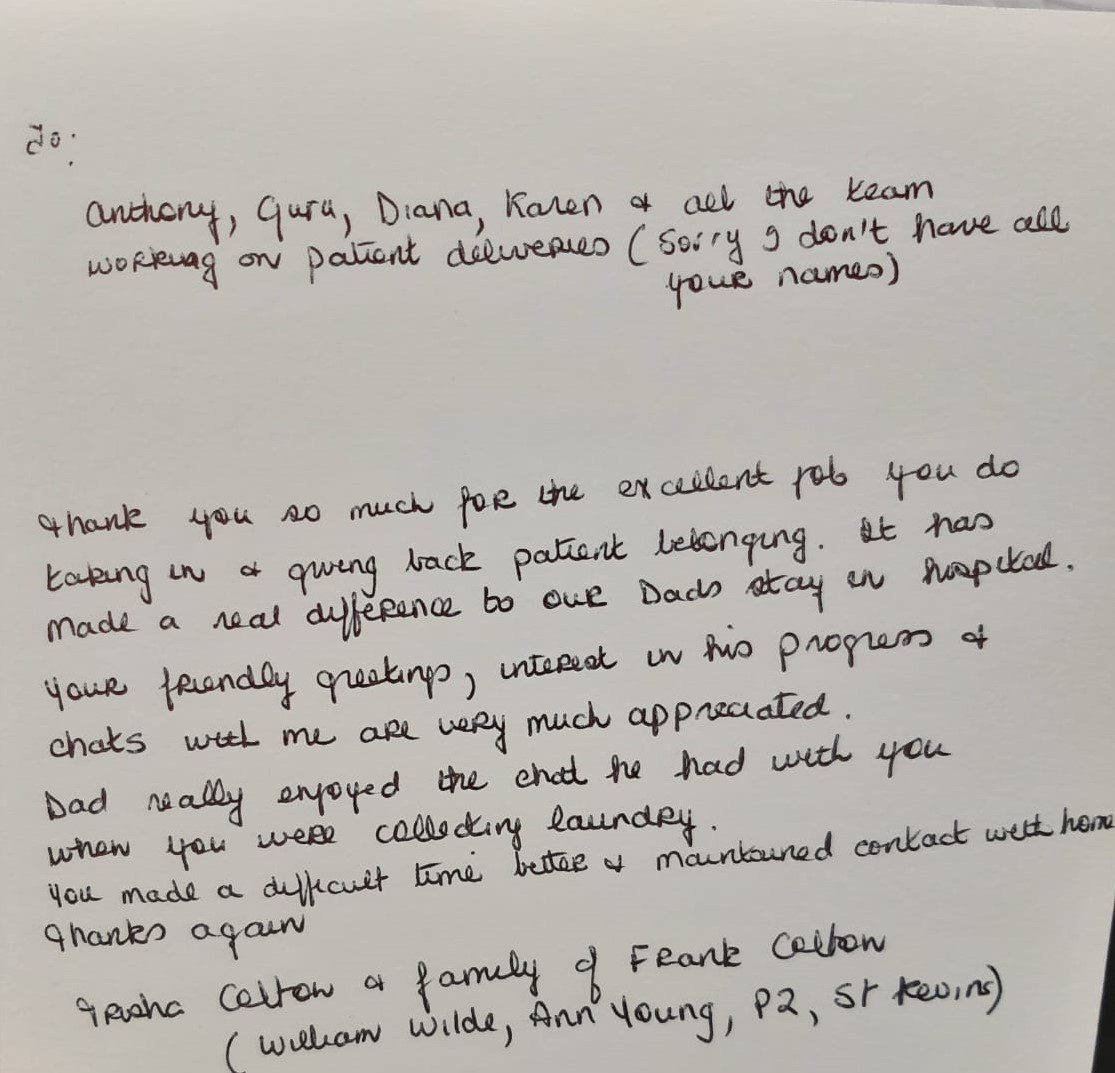 To:
Anthony, Guru, Diana, Karen & all the team
working on patient deliveries (Sorry I don't have all
your names)
Thank you so much for the excellent job you do
taking in & giving back patient belonging. It has
made a real difference to our Dads stay in hospital.
Your friendly greetings, interest in his progress &
chats with me are very much appreciated.
Dad really enjoyed the chat he had with you
when you were collecting laundry.
You made a difficult time better & maintained contact with home
Thanks again
Trisha Colton & family of Frank Colton
(William Wilde, Ann Young, P2, St Kevins)